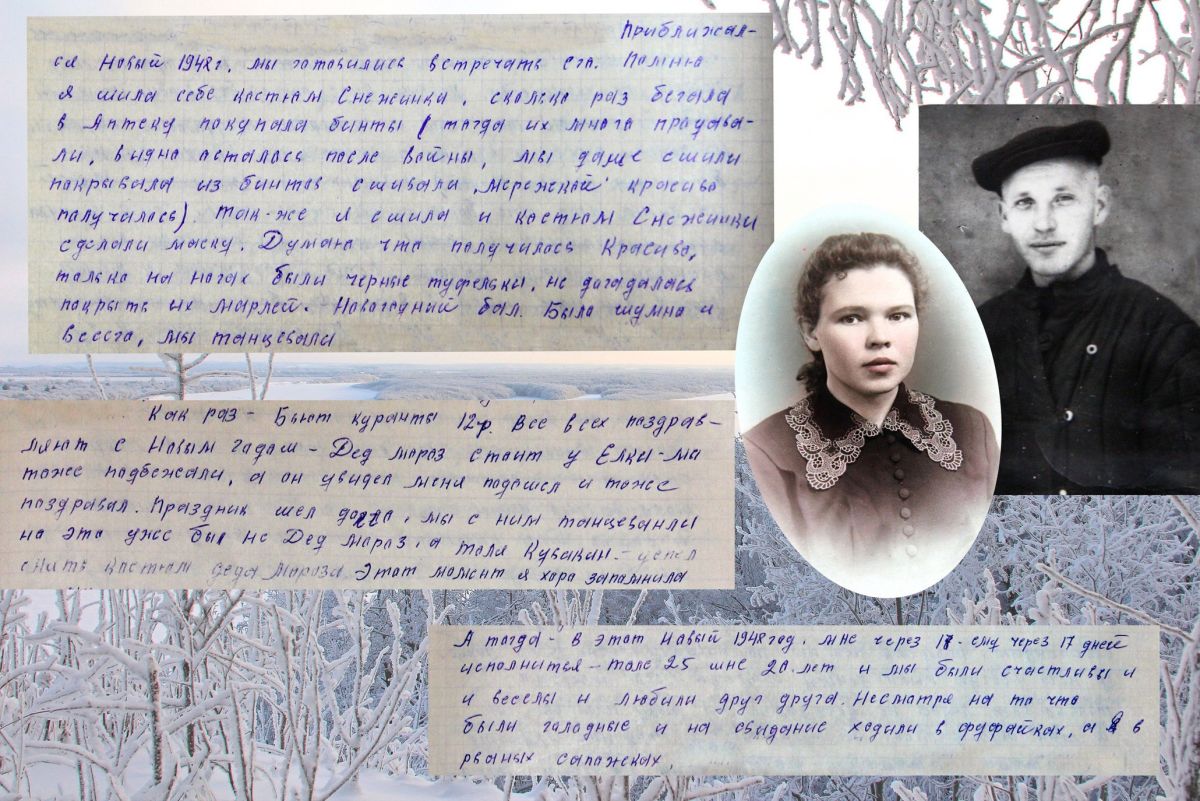 Приближал-
ся Новый 1948г. мы готовились встречать его. Помню
я шила себе костюм Снежинки, сколько раз бегала
в Аптеку покупала бинты (тогда их много продова-
ли, видно осталось после войны, мы даже сшили
покрывала из бинтов сшивали "мережкой" красиво
получалось). Так-же я сшила и костюм Снежинки
сделали маску. Думаю что получилось Красиво,
только на ногах были черные туфельки, не догадалась
покрыть их марлей. Новогодний бал. Было шумно и
весего, мы танцевали
Как раз - Бьют куранты 12ч. Все всех поздрав-
ляют с Новым годом - Дед мороз стоит у Ёлки - мы
тоже подбежали, а он увидел меня подошел и тоже
поздравил. Праздник шел долго, мы с ним танцевали
но это уже был не Дед мороз, а Толя Кувакин - успел
снить костюм деда Мороза. Этот момент я хоро запомнила
А тогда - в этот Новый 1948год. мне через 18 - ему через 17 дней
исполнится - Толе 25 мне 20. лет и мы были счастливы и
и веселы и любили друг друга. Несмотря на то что
были голодные и на свидание ходили в фуфайках, а Я в
рваных сапожках.